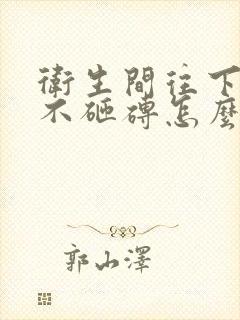 衛生間往下
不砸磚怎麼
郭山澤